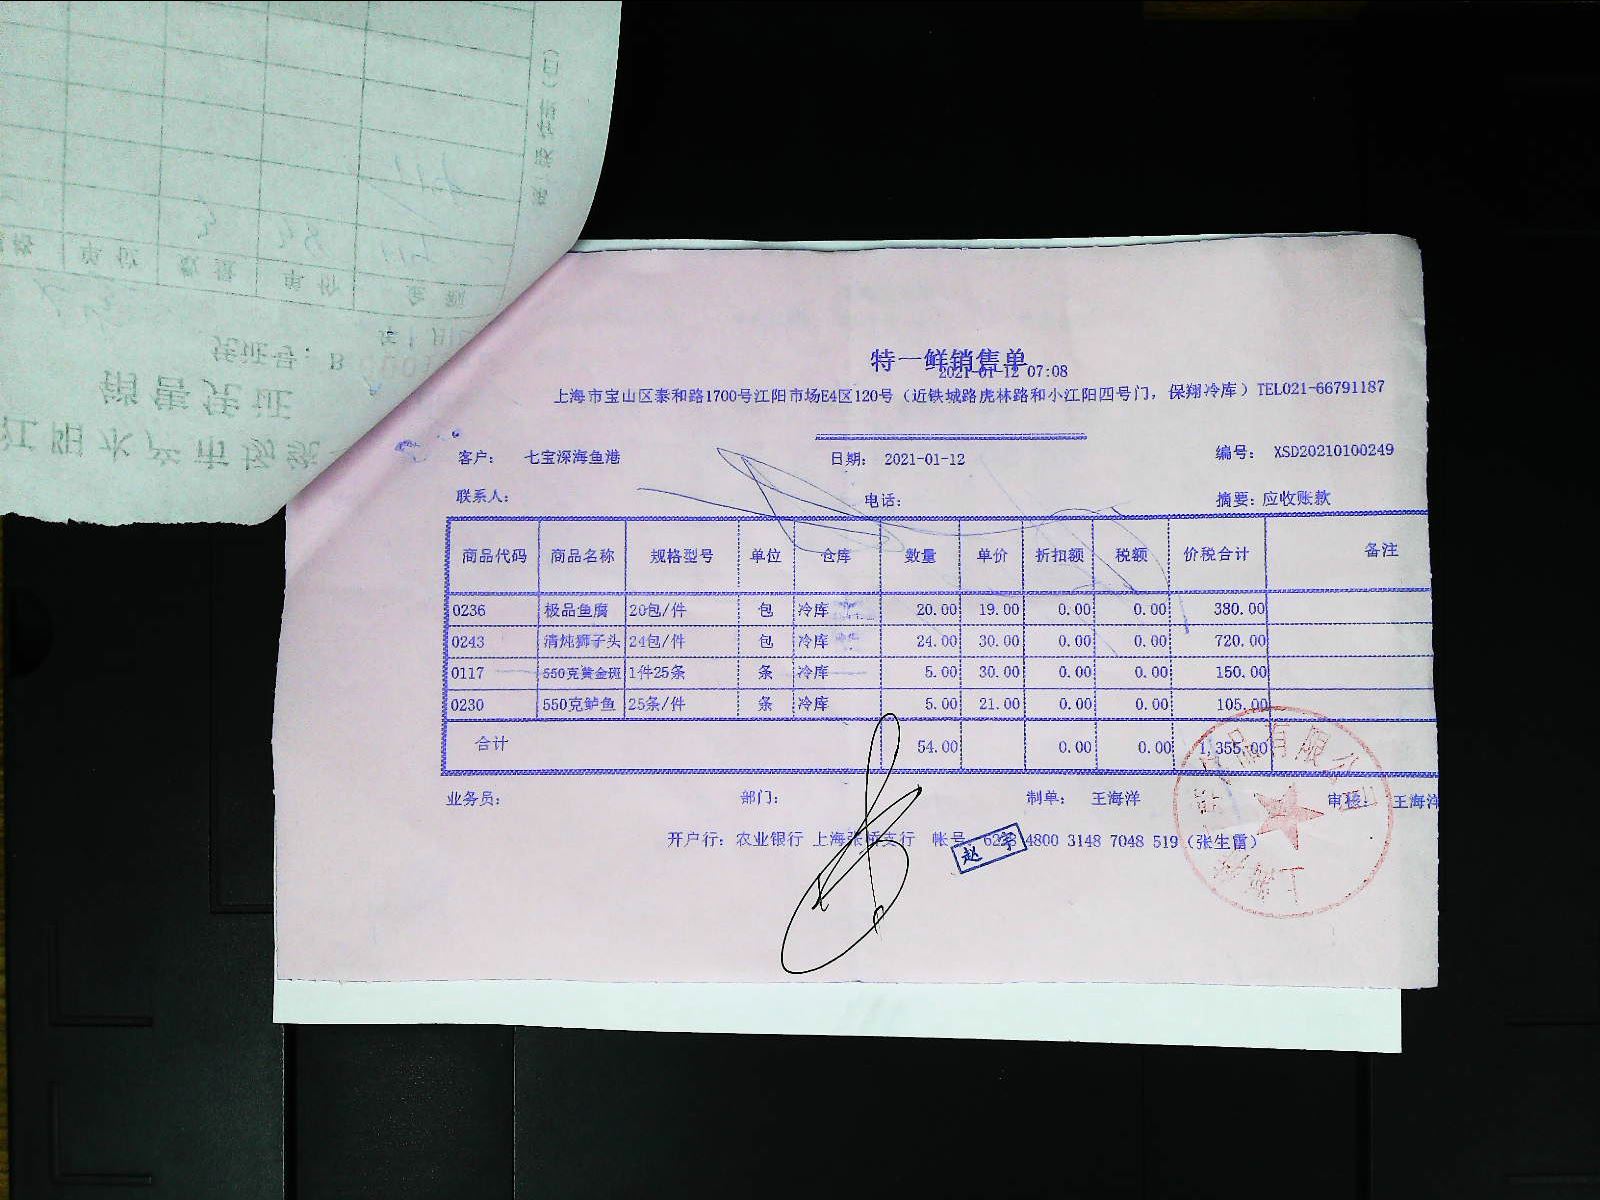 特一鲜销售单
2021-01-12 07:08
上海市宝山区泰和路1700号江阳市场E4区120号（近铁城路虎林路和小江阳四号门，保翔冷库）TEL021-66791187
客户： 七宝深海鱼港 日期： 2021-01-12 编号： XSD20210100249
联系人： 电话： 摘要：应收账款
商品代码 商品名称 规格型号 单位 仓库 数量 单价 折扣额 税额 价税合计 备注
0236 极品鱼腐 20包/件 包 冷库 20.00 19.00 0.00 0.00 380.00
0243 清炖狮子头 24包/件 包 冷库 24.00 30.00 0.00 0.00 720.00
0117 550克黄金斑 1件25条 条 冷库 5.00 30.00 0.00 0.00 150.00
0230 550克鲈鱼 25条/件 条 冷库 5.00 21.00 0.00 0.00 105.00
合计 54.00 0.00 0.00 1,355.00
业务员： 部门： 制单： 王海洋 审核： 王海洋
开户行：农业银行 上海张桥支行 帐号 4800 3148 7048 519（张生雷）
赵宇
品有限公司
上海
江阳水产市场
销售凭证
凭证号： B
单位 数量 单价 金额